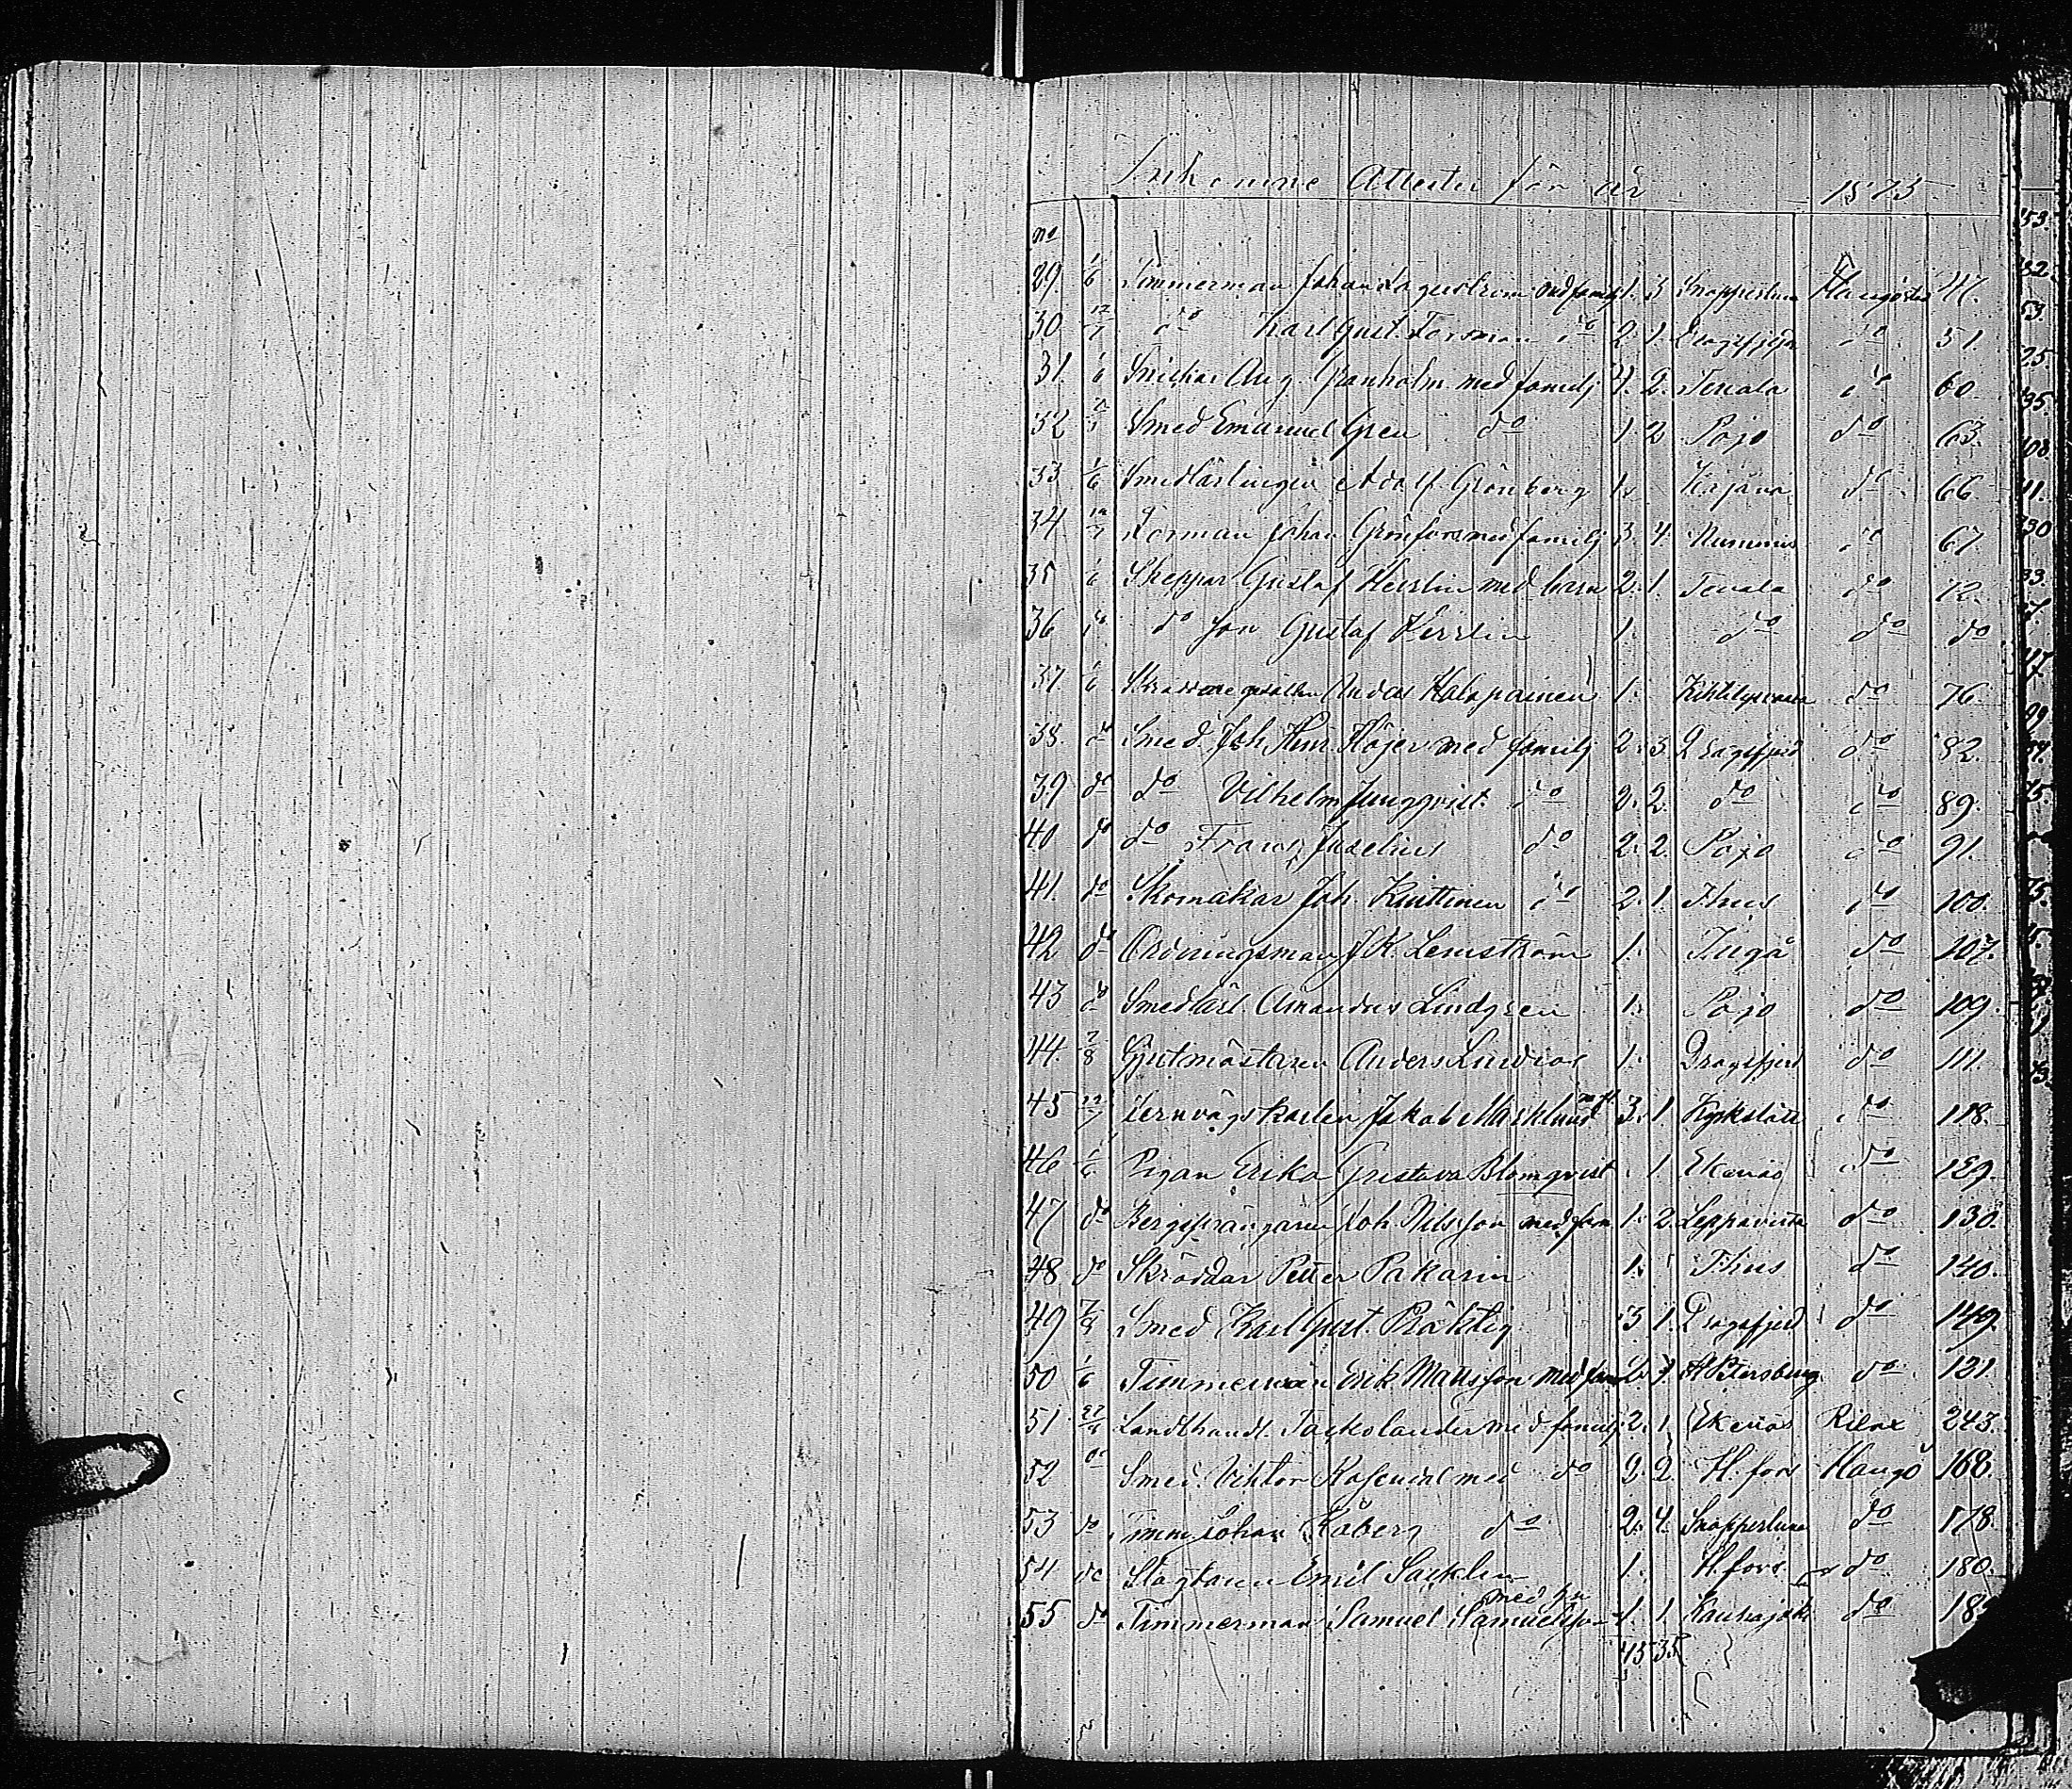 Inkomne Attester för år 1875
No
29 1/6 Timmerman Johan Lagerström med familj 1. 3 Snappertuna Hangöstad 47.
30 12/7 do Karl Gust. Forsman do 2. 1. Dragsfjerd do 51.
31. 1/6 Snickar Aug. Granholm med familj 2. Tenala do 60
32 Smed Emanuel Gren do 1. 2 Pojo do 63.
33 1/6 Smedlärlingen Adolf Grönberg 1. Kajana do 66
34 Förman Johan Grönfors med familj 3. 4. Nummis do 67
35 1/6 Skeppar Gustaf Herrlin med barn 2. 1. Tenala do 72.
36 do do son Gustaf Herrlin 1. do do do
37. 1/6 Skräddaregesällen Anders Halapainen 1. do 76.
38. do Smed Joh. Henr. Höjer med familj 2. 3. Dragsfjerd do 82.
39 do do Vilhelm Ljungqvist do 2. 2. do do 89.
40 do do Frans Juselius do 2. 2. Pojo do 91.
41. do Skomakar Joh. Kinttinen do 2. 1. Thus do 100.
42 do Ordningsman J. K. Lemström 1. Ingå do 107.
43 do Smedlärl. Amandus Lindgren 1. Pojo do 109.
44. 7/8 Gjutmästaren Anders Lindroos 1. Dragsfjerd do 111.
45 22/7 Jernvägskarlen Jakob Marklund 3. 1. Kyrkslätt do 118.
46 1/6 Pigan Erika Gustava Blomqvist 1 Ekenäs do 129.
47 do Bergsprängaren Joh. Nilsson med fam. 1. 2. Leppävirta do 130.
48 do Skräddar Petter Pakarin 1. Thus do 140.
49 Smed Karl Gust. Präktig 3 1. Dragsfjerd do 149.
50 1/6 Timmerman Erik Mattsson med fam 2. St Petersburg do 121.
51. Landthandl. Tackolander med familj 2. 1. Ekenäs Rilax 243.
52 do Smed Viktor Rosendal med do 2. 2 H.fors Hangö 168.
53 do Timm Johan Råberg do 2. 4. Snappertuna do 178.
54 do Slagtaren Emil Sacklin 1. H.fors do 180.
55 do Timmerman Samuel Samuelsson med hu 1. 1. Kauhajoki do 18
45 35